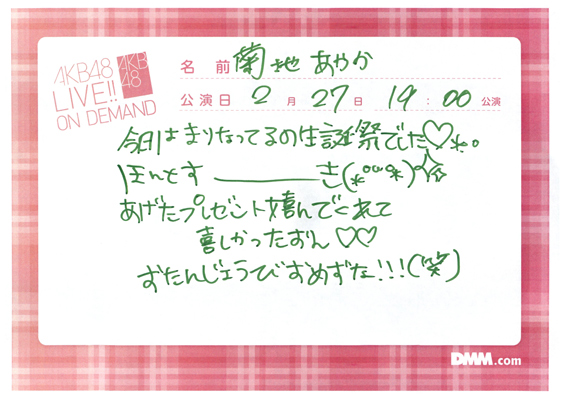 AKB48
LIVE!!
ON DEMAND
AKB
48
名 前 菊地 あやか
公演日 2 月 27 日 19 : 00 公演
今日はまりなってるの生誕祭でした♡*。
ほんとす――――き(*°ω°*)☆
あげたプレゼント喜んでくれて
喜しかったおん♡♡
おたんじょうびおめずな!!!(笑)
DMM.com